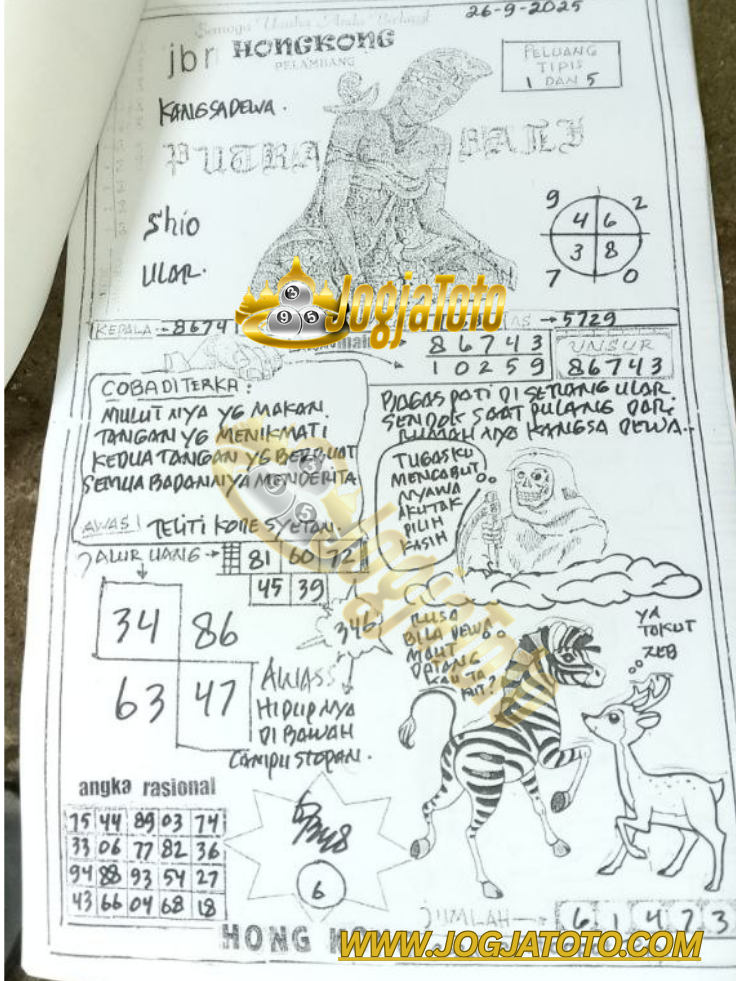 Semoga Usaha Anda Berhasil
26-9-2025
jbr HONGKONG
PELAMBANG
PELUANG
TIPIS
1 DAN 5
KANGSADEWA.
PUTRA BALI
Shio
ULAR.
9 2
4 6
3 8
7 0
KEPALA → 8674
AS → 5729
JogjaToto
9 5
main
86743
10259
UNSUR
86743
COBA DITERKA:
MULUTNYA YG MAKAN.
TANGAN YG MENIKMATI
KEDUA TANGAN YG BERBUAT
SEMUA BADANNYA MENDERITA
AWAS! TELITI KODE SYETAN.
DI SETIANG ULAR.
SENDOK SAAT PULANG DARI
RUMAHNYA KANGSA DEWA..
TUGASKU
MENCABUT
NYAWA
AKU TAK
PILIH
KASIH
JALUR UANG → 81 60 72
45 39
34 86
63 47
346
AWASS
HIDUPNYA
DI BAWAH
LAMPU STOPAN.
RUSA
BILA DEWA
MAUT
DATANG
YA
TAKUT
ZEB
angka rasional
75 44 89 03 74
33 06 77 82 36
94 88 93 54 27
43 66 04 68 18
6
JUMLAH → 6 1 4 7 3
HONG
WWW.JOGJATOTO.COM